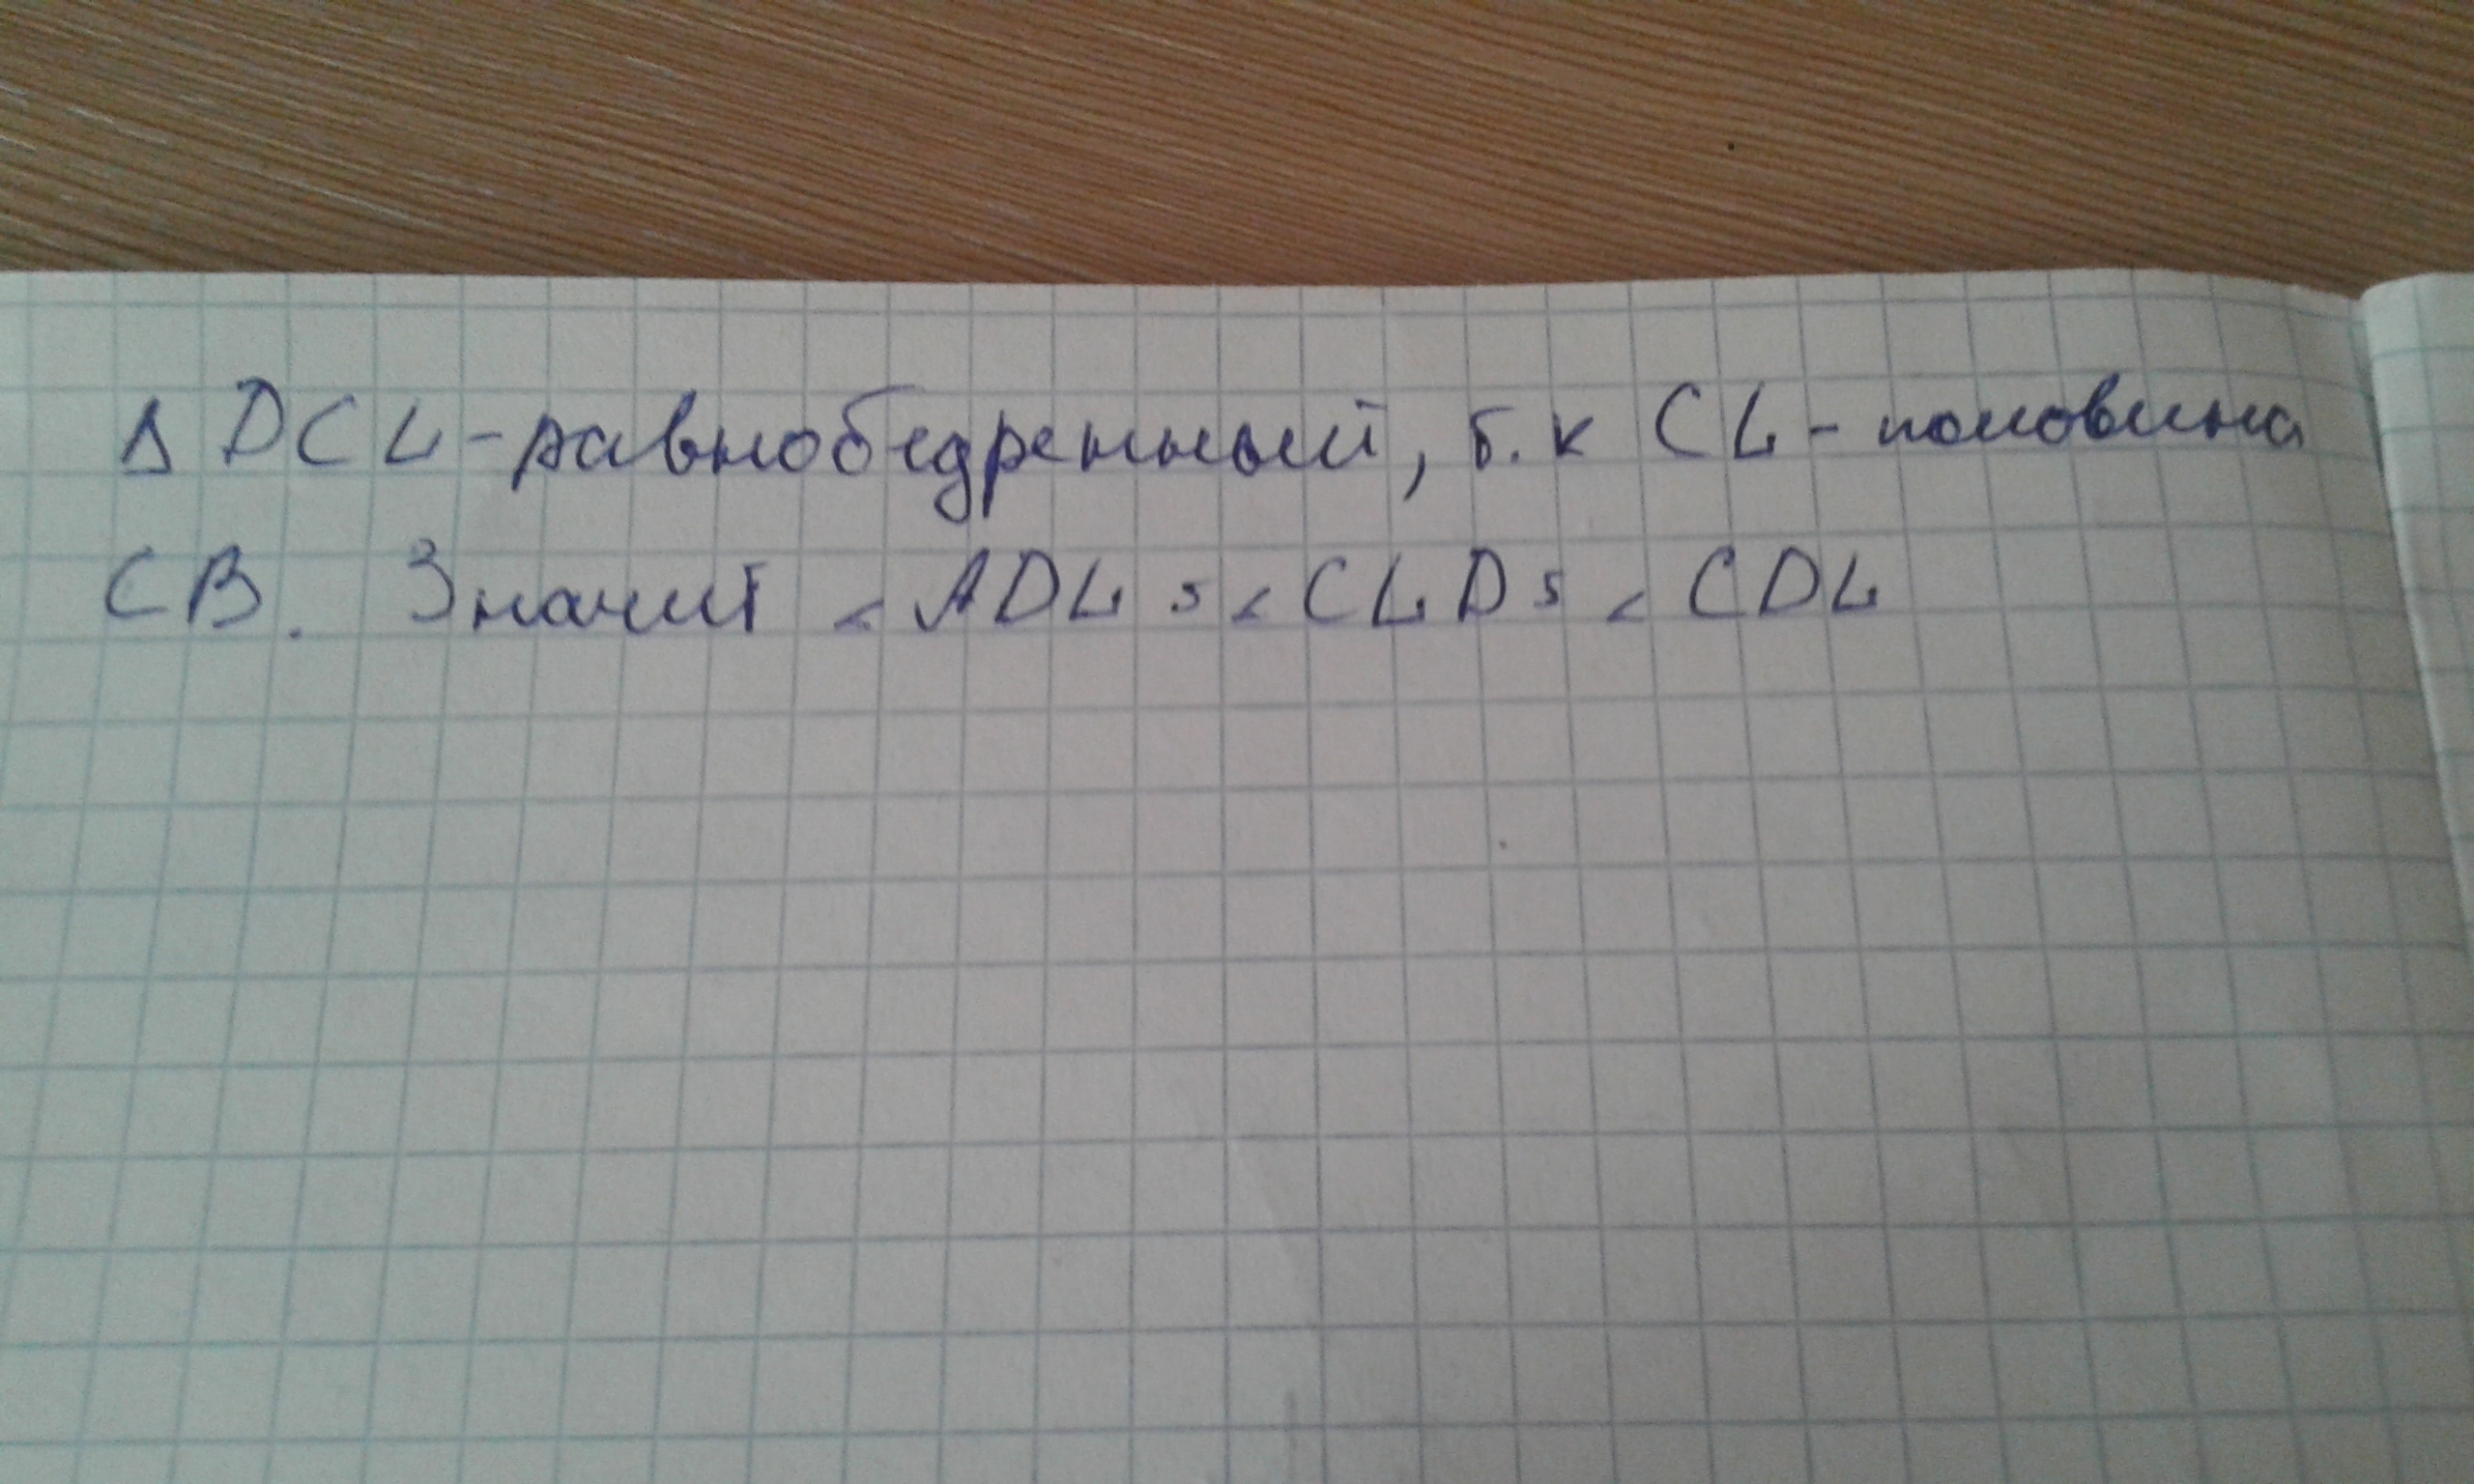 Δ DCL - равнобедренный, т.к CL - половина
CB. Значит ∠ ADL = ∠ CLD = ∠ CDL